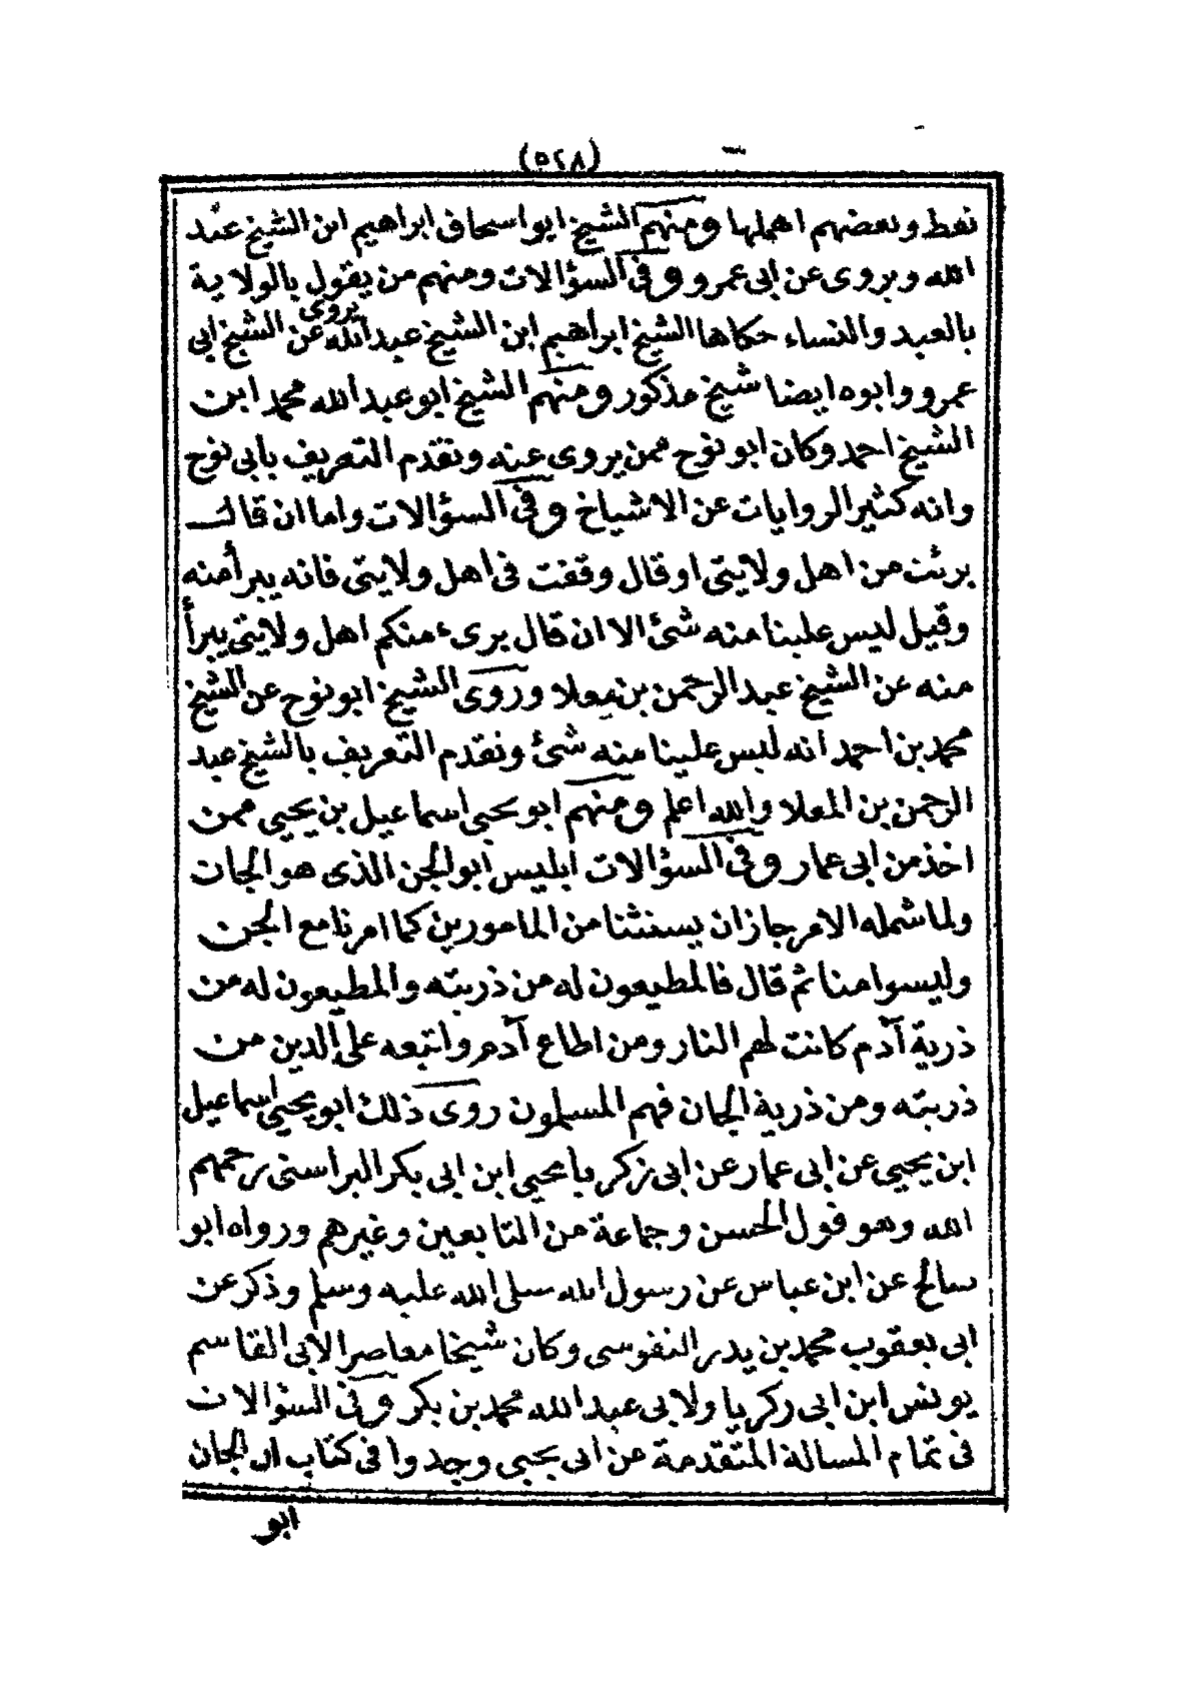 (٥٢٨)
نقط وبعضهم اهملها ومنهم الشيخ ابو اسحاق ابراهيم ابن الشيخ عبد
الله ويروى عن ابى عمرو وفى السؤالات ومنهم من يقول بالولاية
بالعبد والنساء حكاها الشيخ ابراهيم ابن الشيخ عبد الله يروى عن الشيخ ابي
عمرو وابوه ايضا شيخ مذكور ومنهم الشيخ ابو عبد الله محمد ابن
الشيخ احمد وكان ابو نوح ممن يروى عنه وتقدم التعريف بابى نوح
وانه كثير الروايات عن الاشياخ وفى السؤالات واما ان قال
برئت من اهل ولايتى او قال وقفت فى اهل ولايتى فانه يبرأ منه
وقيل ليس علينا منه شئ الا ان قال برىء منكم اهل ولايتى يبرأ
منه عن الشيخ عبد الرحمن بن معلا وروى الشيخ ابو نوح عن الشيخ
محمد بن احمد انه ليس علينا منه شئ وتقدم التعريف بالشيخ عبد
الرحمن بن المعلا والله اعلم ومنهم ابو يحيى اسماعيل بن يحيى ممن
اخذ من ابى عمار وفى السؤالات ابليس ابو الجن الذى هو الجان
ولما شمله الامر جاز ان يستثنا من المامورين كما امرنا مع الجن
وليسوا منا ثم قال فالمطيعون له من ذريته والمطيعون له من
ذرية آدم كانت لهم النار ومن اطاع آدم واتبعه على الدين من
ذريته ومن ذرية الجان فهم المسلمون روى ذلك ابو يحيى اسماعيل
ابن يحيى عن ابى عمار عن ابى زكريا يحيى ابن ابى بكر البراسنى رحمهم
الله وهو قول الحسن وجماعة من التابعين وغيرهم ورواه ابو
صالح عن ابن عباس عن رسول الله صلى الله عليه وسلم وذكر عن
ابى يعقوب محمد بن يدر النفوسى وكان شيخا معاصر الابى القاسم
يونس ابن ابى زكريا ولابى عبد الله محمد بن بكر وفى السؤالات
فى تمام المسالة المتقدمة عن ابى يحيى وجدوا فى كتاب ان الجان
ابو